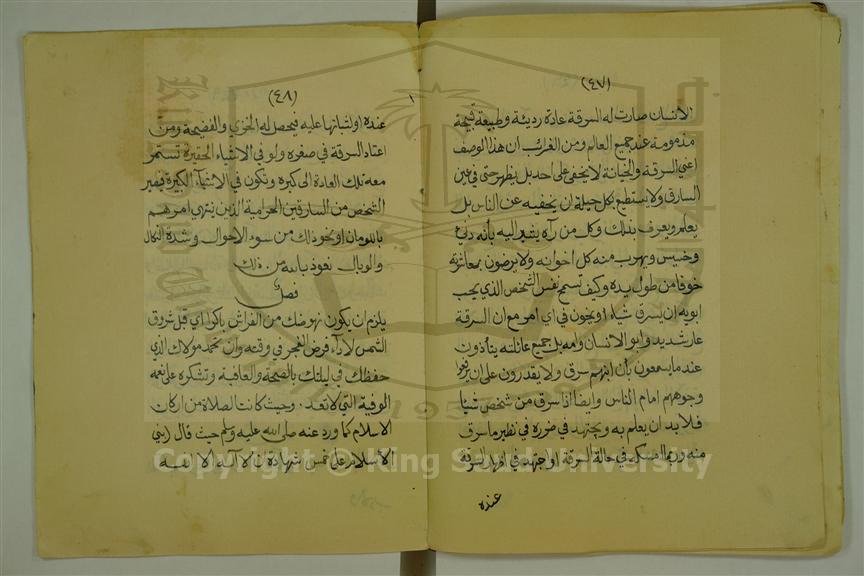 (٤٧)
الانسان صارت له السرقة عادة رديئة وطبيعة قبيحة
مذمومة عند جميع العالم ومن الغرائب ان هذا الوصف
اعني السرقة والخيانة لا يخفى على احد بل يظهر حتى في عين
السارق ولا يستطيع بكل حيلة ان يخفيه عن الناس بل
يعلم ويعرف بذلك وكل من رآه يشير اليه بأنه دنئ
وخسيس ويهرب منه كل اخوانه ولا يرضون بمعاشرته
خوفا من طول يده وكيف تسمح نفس الشخص الذي يحب
ابويه ان يسرق شياء او يخون في اي امر مع ان السرقة
عار شديد وابو الانسان وامه بل جميع عائلته يتأذون
عند ما يسمعون بأن ابنهم سرق ولا يقدرون على ان يرفعوا
وجوههم امام الناس وايضا اذا سرق من شخص شيئا
فلا بد ان يعلم به ويجتهد في ضرره في نظير ما سرق
منه وربما امسكه في حالة السرقة او اجتهد في اظهار السرقة
عنده
(٤٨)
عنده او اثباتها عليه فيحصل له الخزي والفضيحة ومن
اعتاد السرقة في صغره ولو في الاشياء الحقيرة تستمر
معه تلك العادة الى كبره وتكون في الاشياء الكبيرة فيصير
الشخص من السارقين الحرامية الذين ينتهي امرهم
باللومان او نحو ذلك من سوء الاحوال وشدة النكال
والوبال نعوذ بالله من ذلك
فصل
يلزم ان يكون نهوضك من الفراش باكرا اي قبل شروق
الشمس لاداء فرض الفجر في وقته وان تحمد مولاك الذي
حفظك في ليلتك بالصحة والعافية وتشكره على نعمه
الوفية التي لا تعد. وحيث كانت الصلاة من اركان
الاسلام كما ورد عنه صلى الله عليه وسلم حيث قال (بني
الاسلام على خمس شهادة ان لا اله الا الله
Copyright © King Saud University
1957